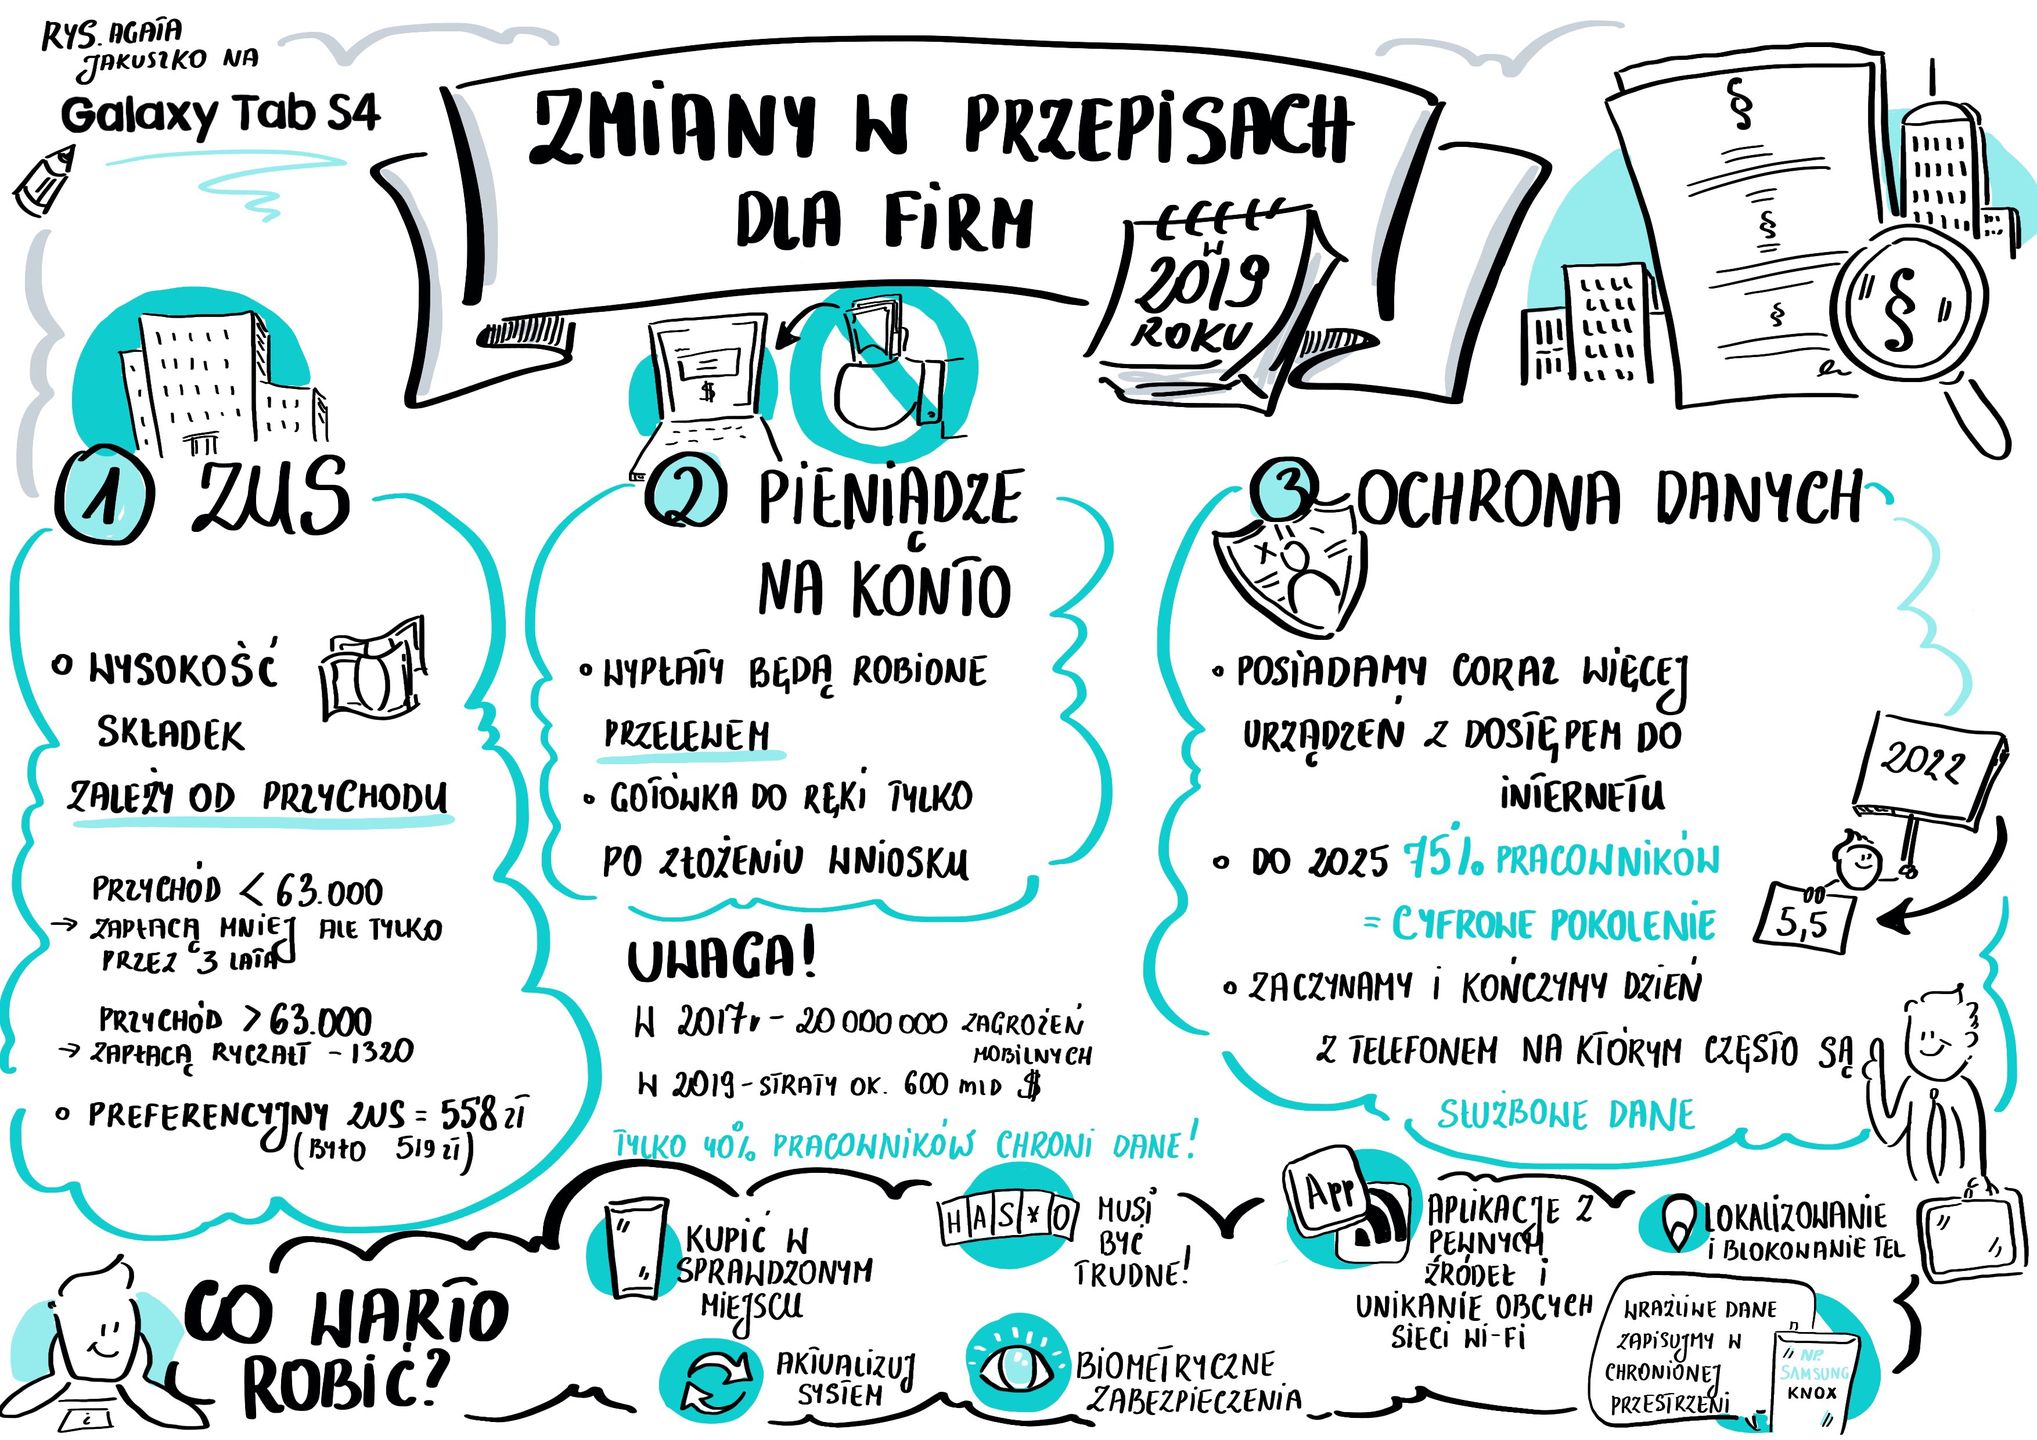 RYS. AGATA
JAKUSZKO NA
Galaxy Tab S4
ZMIANY W PRZEPISACH
DLA FIRM
W
2019
ROKU
§
§
§
§
$
1 ZUS
WYSOKOŚĆ
SKŁADEK
ZALEŻY OD PRZYCHODU
PRZYCHÓD < 63.000
→ ZAPŁACĄ MNIEJ ALE TYLKO
PRZEZ 3 LATA
PRZYCHÓD > 63.000
→ ZAPŁACĄ RYCZAŁT - 1320
PREFERENCYJNY ZUS = 558 zł
(BYŁO 519 zł)
2 PIENIĄDZE
NA KONTO
WYPŁATY BĘDĄ ROBIONE
PRZELEWEM
GOTÓWKA DO RĘKI TYLKO
PO ZŁOŻENIU WNIOSKU
UWAGA!
W 2017r - 20 000 000 ZAGROŻEŃ
MOBILNYCH
W 2019 - STRATY OK. 600 MLD $
TYLKO 40% PRACOWNIKÓW CHRONI DANE!
3 OCHRONA DANYCH
POSIADAMY CORAZ WIĘCEJ
URZĄDZEŃ Z DOSTĘPEM DO
INTERNETU
DO 2025 75% PRACOWNIKÓW
= CYFROWE POKOLENIE
2022
5,5
ZACZYNAMY I KOŃCZYMY DZIEŃ
Z TELEFONEM NA KTÓRYM CZĘSTO SĄ
SŁUŻBOWE DANE
CO WARTO
ROBIĆ?
KUPIĆ W
SPRAWDZONYM
MIEJSCU
AKTUALIZUJ
SYSTEM
HAS*O
MUSI
BYĆ
TRUDNE!
BIOMETRYCZNE
ZABEZPIECZENIA
App
APLIKACJE Z
PEWNYCH
ŹRÓDEŁ I
UNIKANIE OBCYCH
SIECI WI-FI
LOKALIZOWANIE
I BLOKOWANIE TEL
WRAŻLIWE DANE
ZAPISUJMY W
CHRONIONEJ
PRZESTRZENI
NP.
SAMSUNG
KNOX